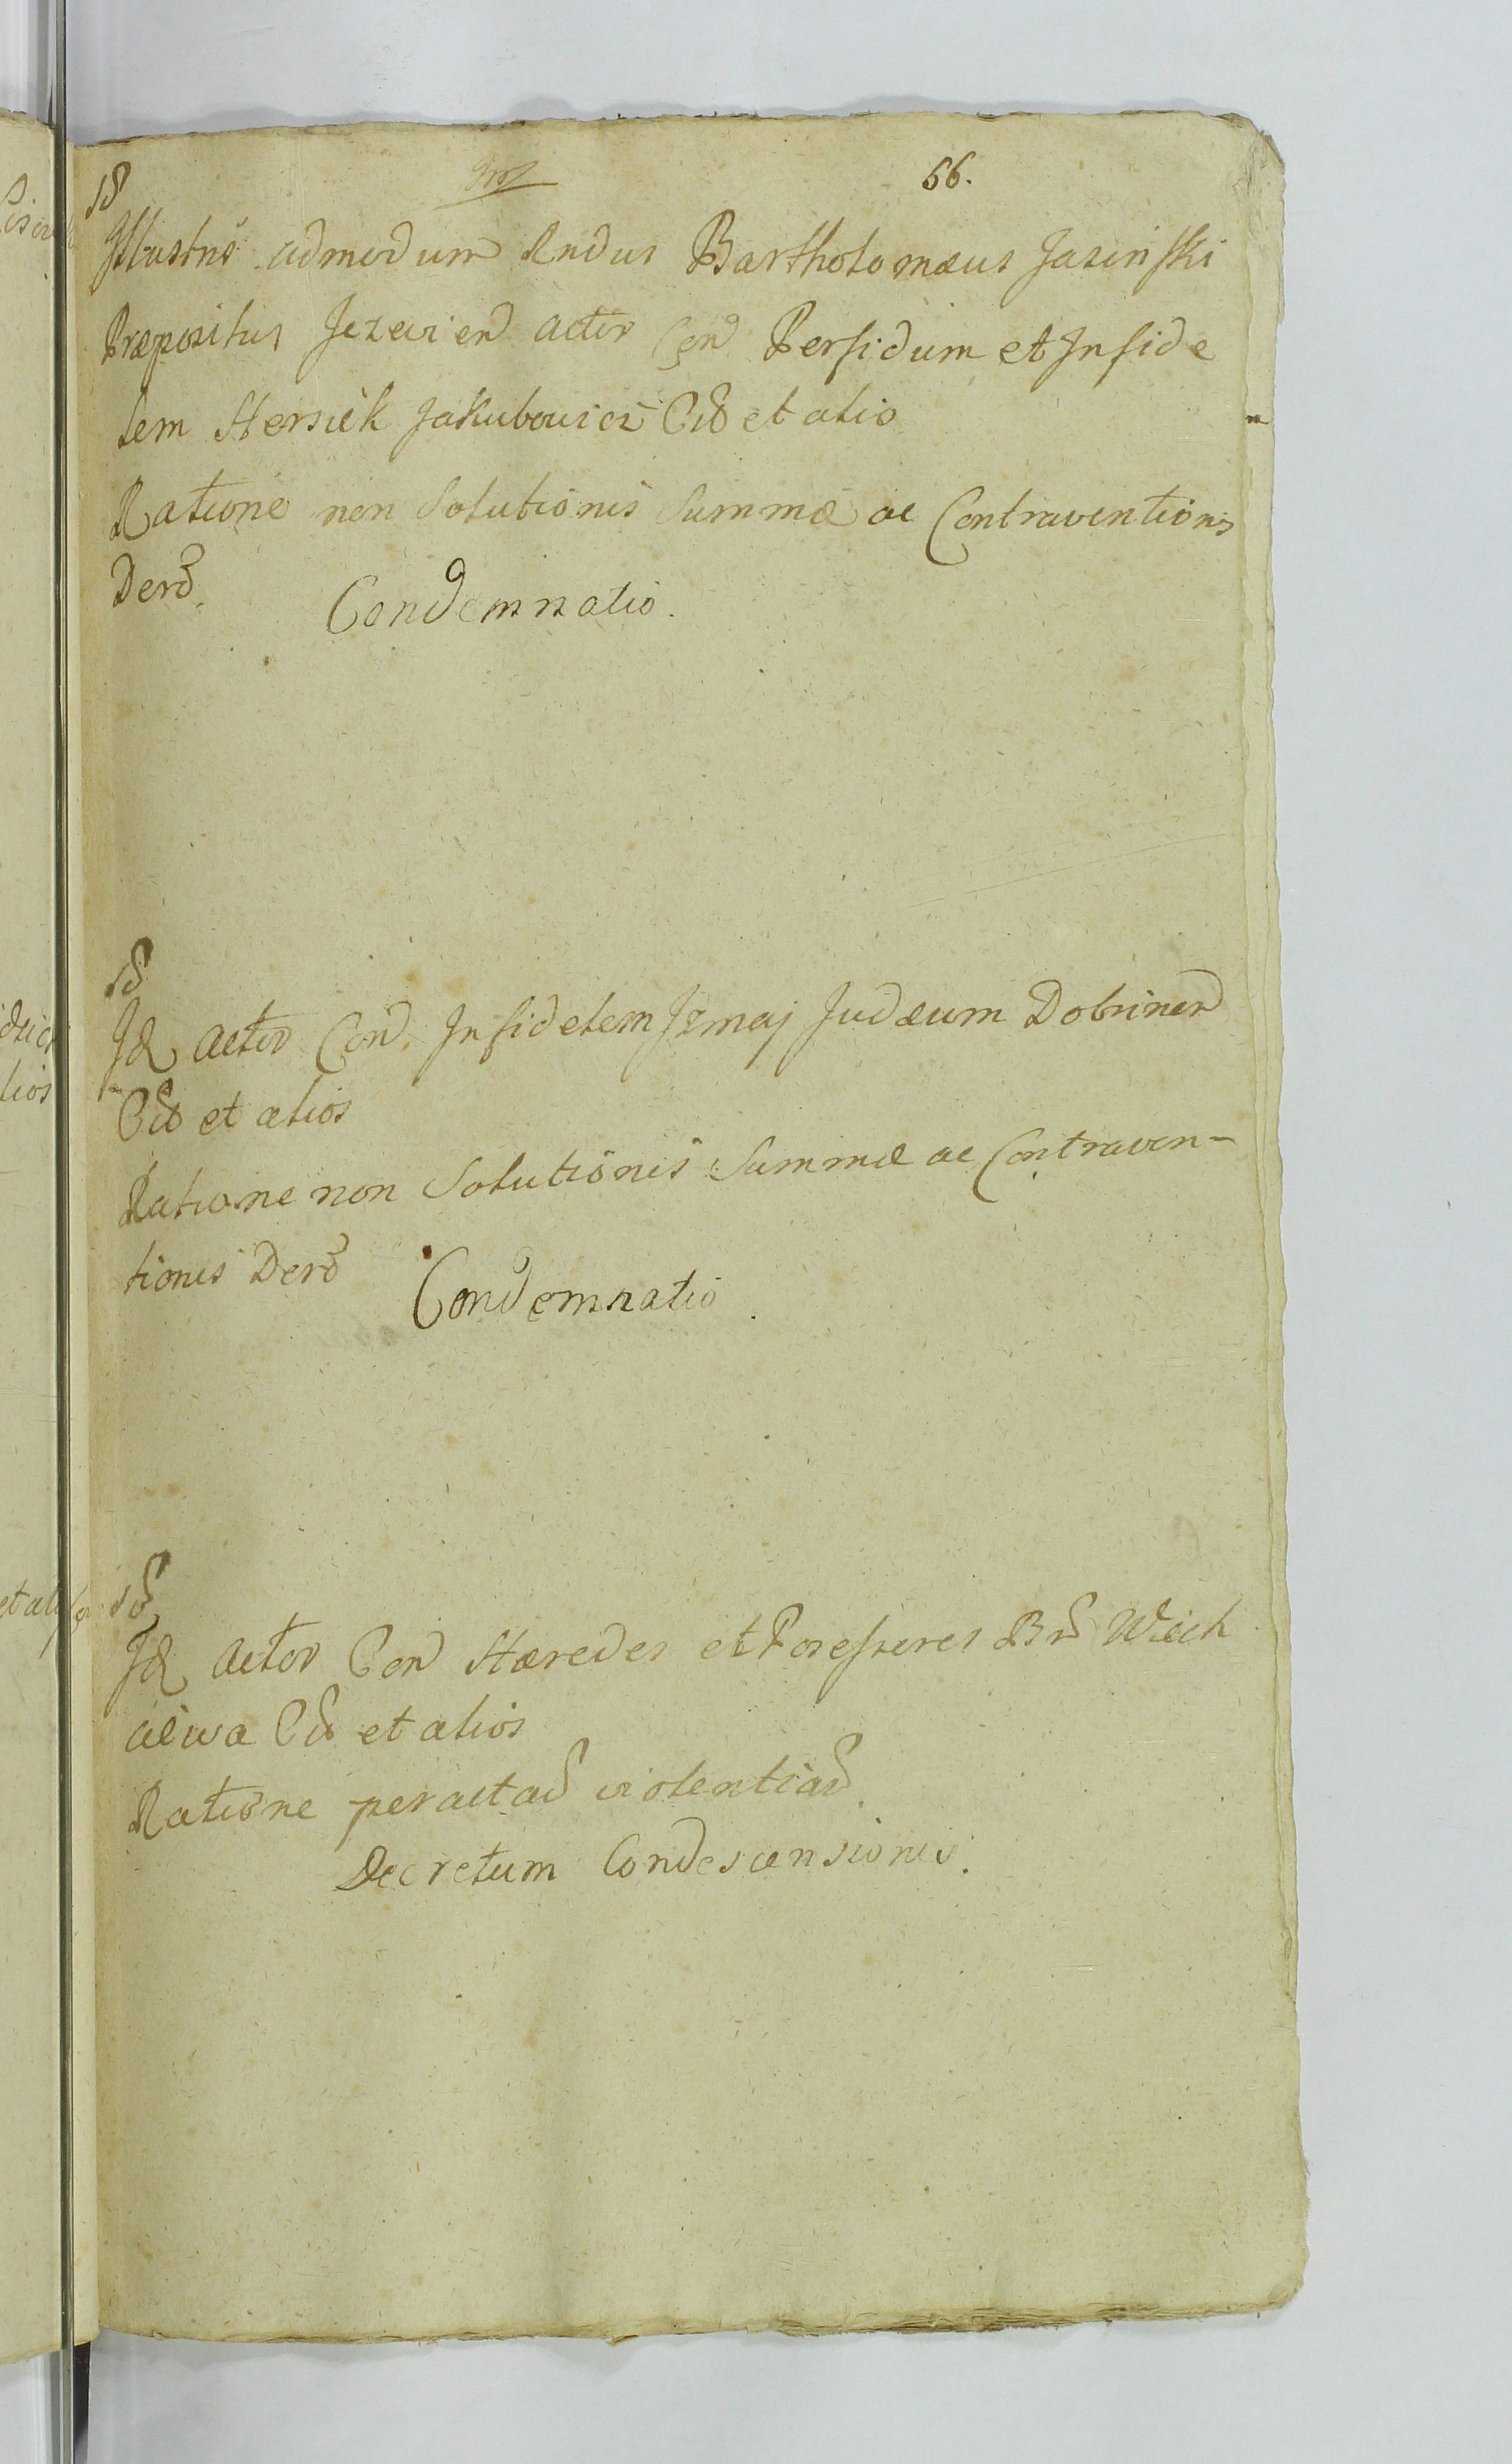 66.
Illustris admodum Rndus Bartholomæus Jasinski
Præpositus Jezevien actor Con Perfidum et Infide
lem Hersiek Jakubowicz Cit et alio
Ratione non Solutionis Summæ ac Contraventionis
Decr.
Condemnatio.
Id Actor Con. Infidelem Izmaj Judæum Dobrinen
Cit et alios
Ratione non Solutionis Summæ ac Contraven-
tionis Decr
Condemnatio.
Id Actor Con Hæredes et Possessores Br Wich
Cit et alios
Ratione peractar violentiar
Decretum Condescensionis.